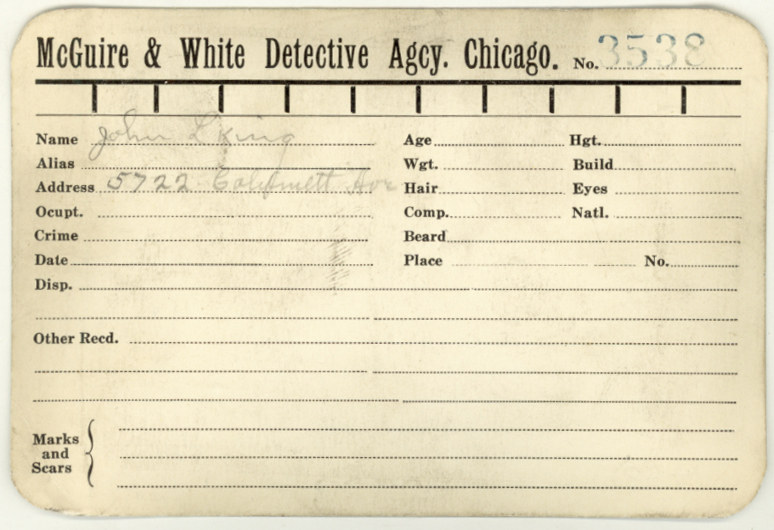 McGuire & White Detective Agcy. Chicago. No. 3538
Name John L King Age Hgt.
Alias Wgt. Build
Address 5722 Ave Hair Eyes
Ocupt. Comp. Natl.
Crime Beard
Date Place No.
Disp.
Other Recd.
Marks
and
Scars